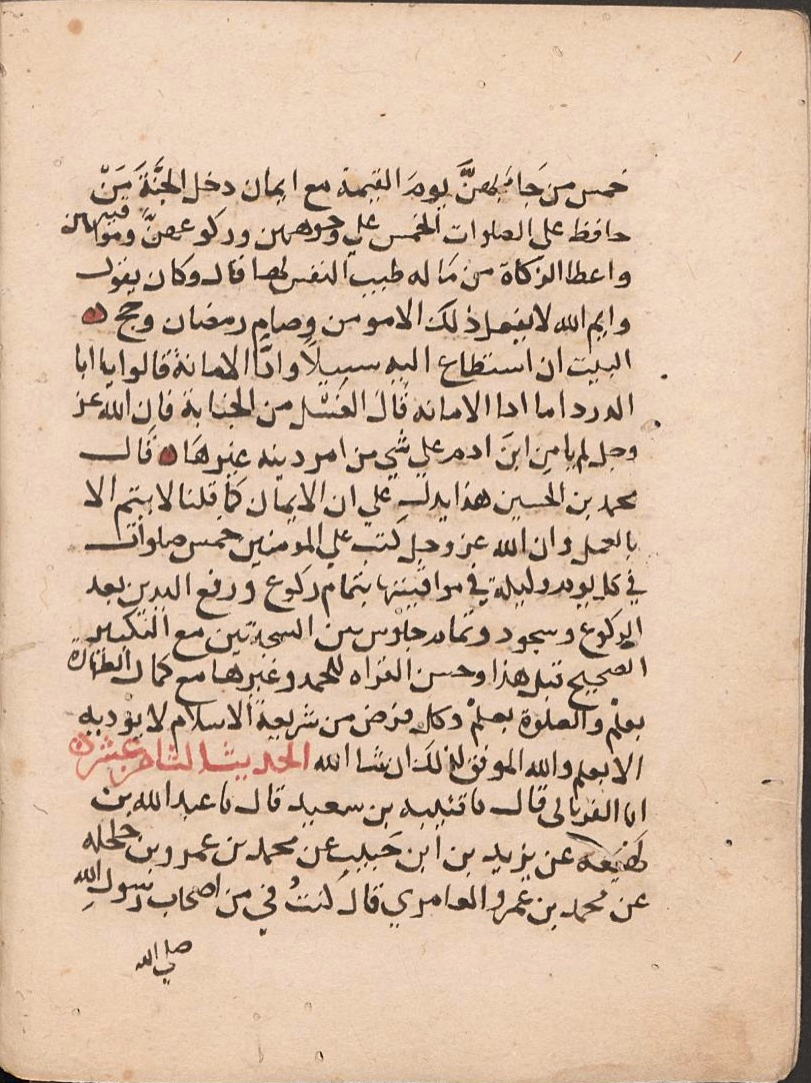 خمس من جا بهنَّ يومَ القيمة مع ايمان دخل الجنَّةَ مَنْ
حافظ على الصلوات الخمس علي وضوهن وركوعهنَّ ومواقيتهن
واعطا الزكاة من مَاله طيب النفس لها قال وكان يقول
وايم الله لا يفعل ذلك الا مومن وصام رمضان وحج
البيت ان استطاع اليه سبيلًا وادَّا الامانة قالوا يا ابا
الدردا ما ادا الامانه قَالَ الغُسْل من الجنابة فان الله عز
وجل لم يامن ابنَ ادم علي شي من امر دينه غيرهَا قَال
محمد بن الحسين هذا يدل علي ان الايمان كما قلنا لا يتم الا
بالعمل وان الله عز وجل كتب علي المومنين خمس صلوات
في كل يوم وليلة في مواقيتها بتمام ركوع ورفع اليدين بعد
الركوع وسجود وتمام جلوس بين السجدتين مع التكبير
الصحيح قبل هذا وحسن القراه للحمد وغيرها مع كمال الطهارة
بعلمْ والصلوة بعلمْ وكل فرض من شريعة الاسلام لا يوديه
الا بعلم والله الموفق لذلك ان شا الله الحديث الثامن عشر
انا الفريابي قال نا قتيبه بن سعيد قال نا عبد الله بن
لهيعه عن يزيد بن ابن حَبيب عن محمد بن عمرو بن حلحله
عن محمد بن عمرو العامري قال كنتُ في من اصحاب رسول اللهِ
صلي الله